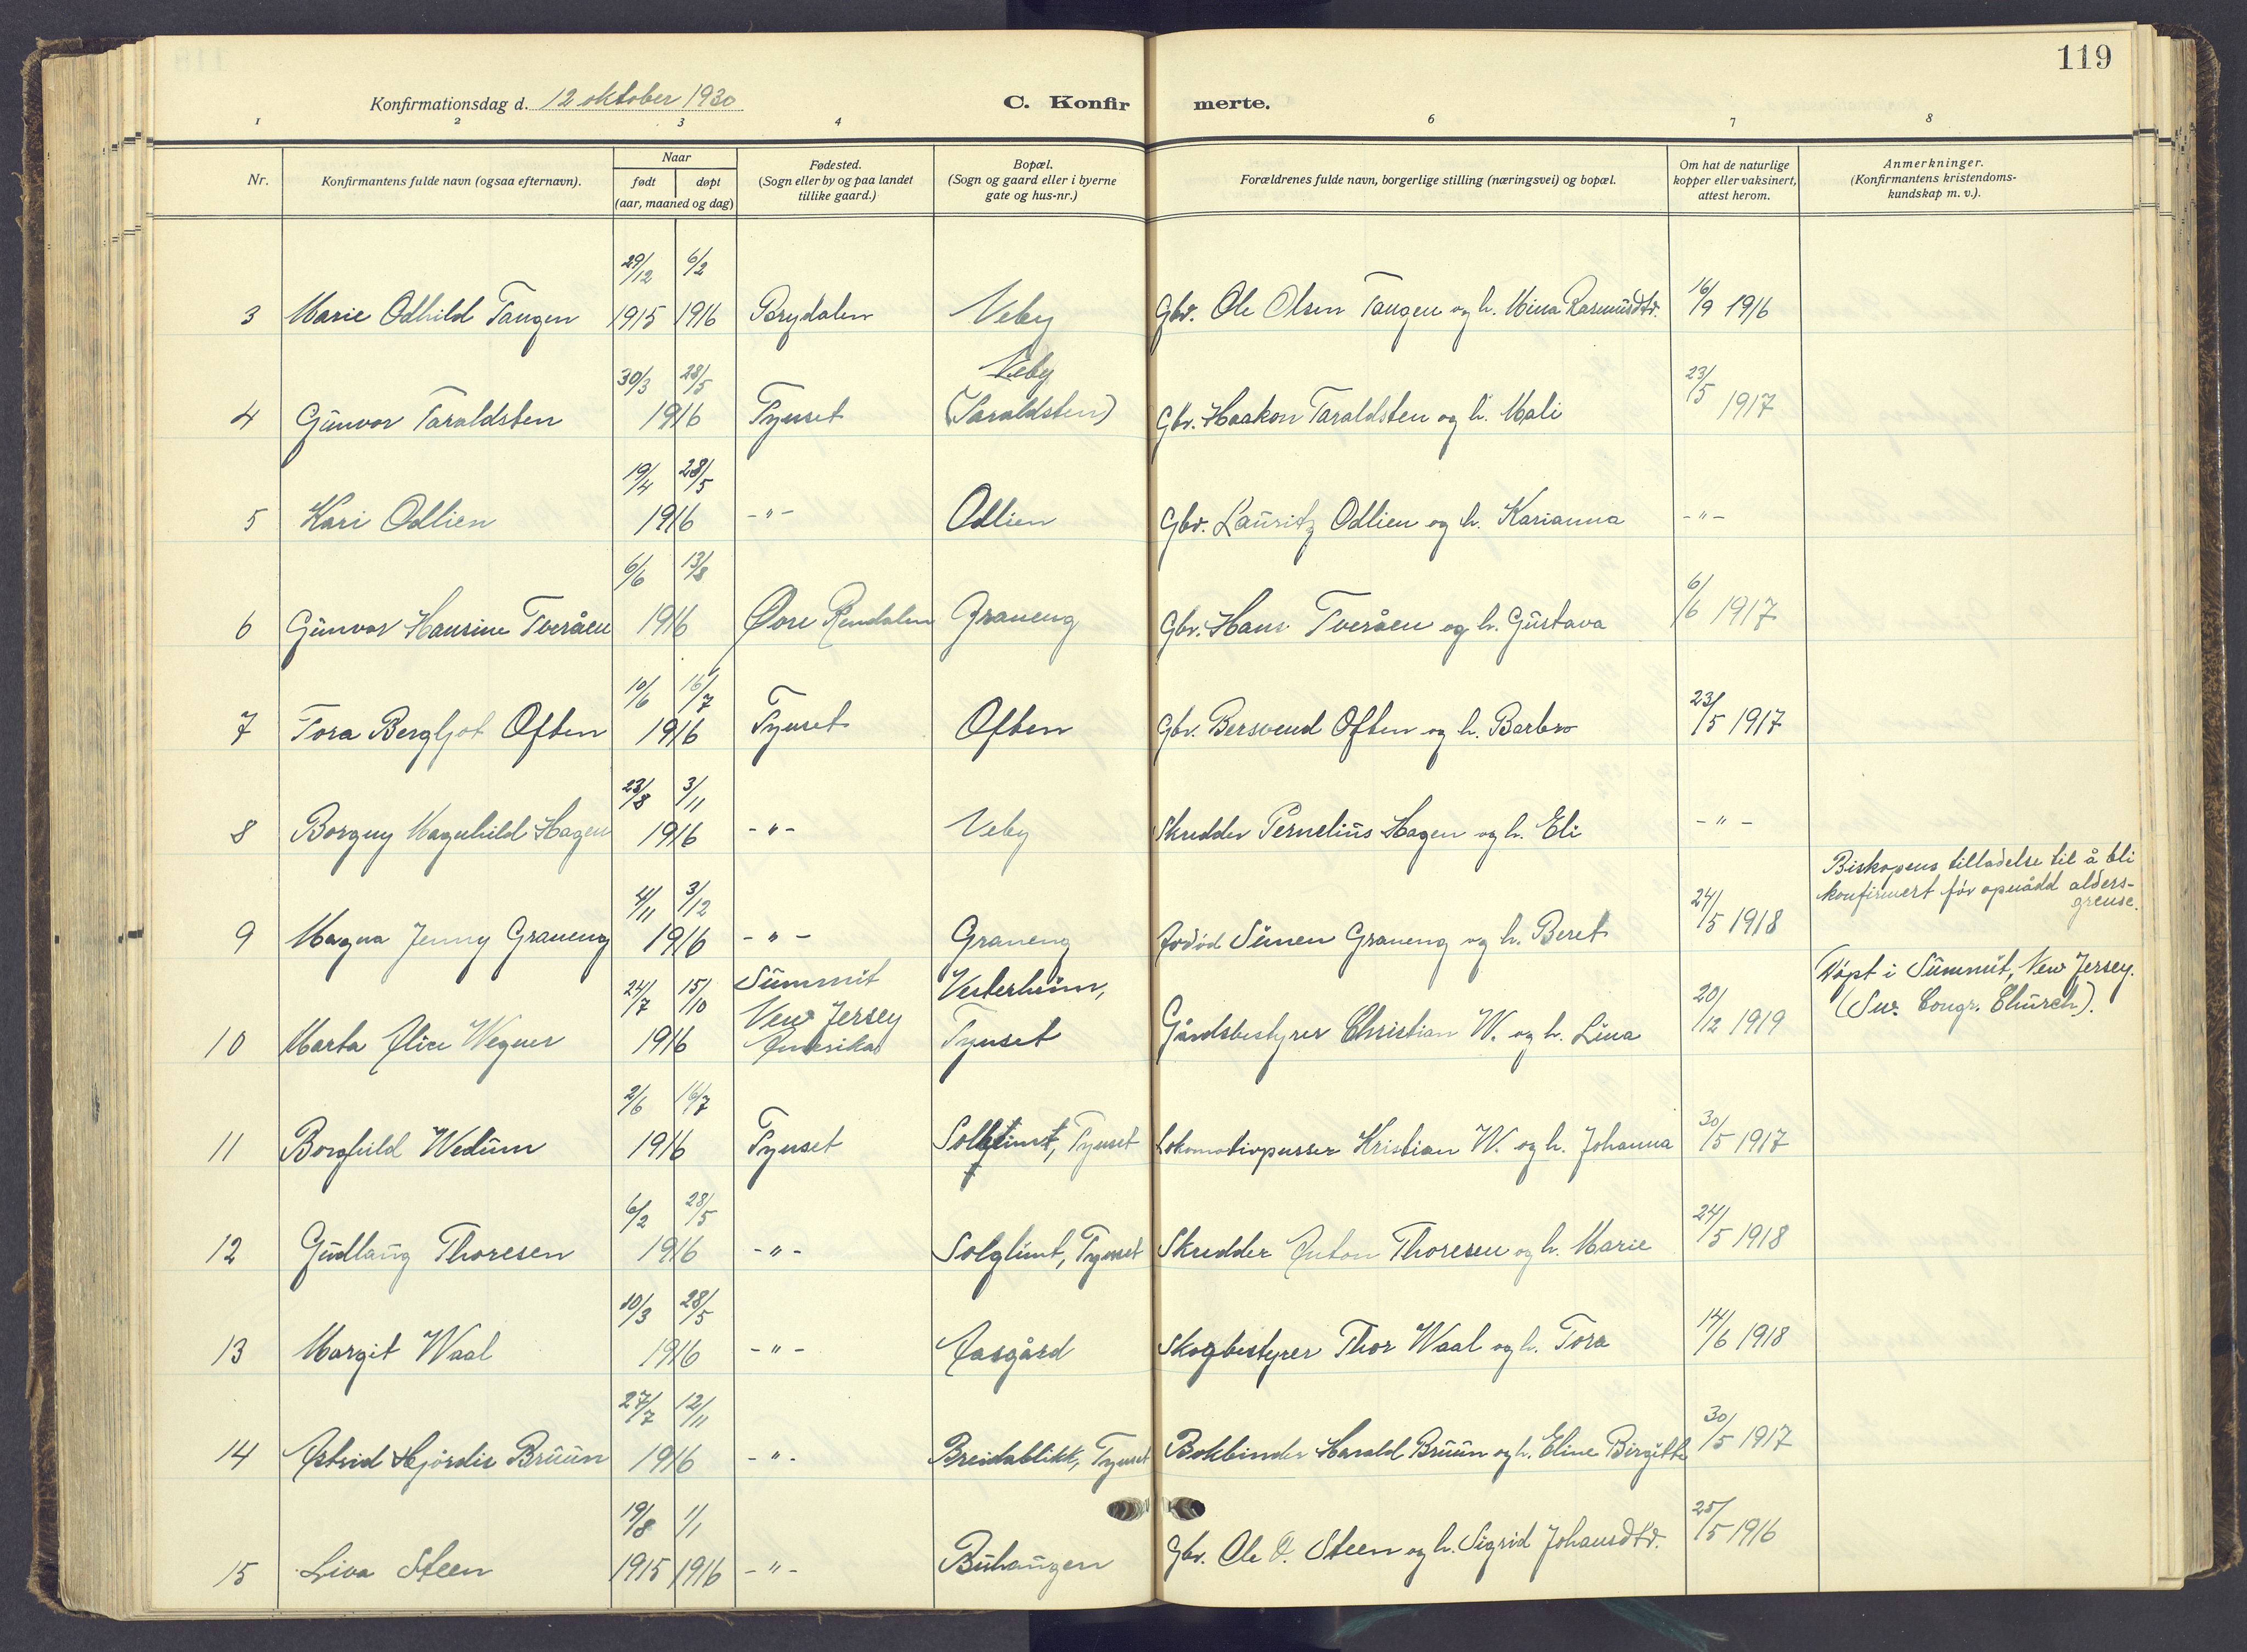 119
Konfirmationsdag d. 12 oktober 1930
C. Konfir merte.
1 2 3 4 6 7 8
Nr.
Konfirmantens fulde navn (ogsaa efternavn).
Naar
født døpt
(aar, maaned og dag)
Fødested.
(Sogn eller by og paa landet
tillike gaard.)
Bopæl.
(Sogn og gaard eller i byerne
gate og hus-nr.)
Forældrenes fulde navn, borgerlige stilling (næringsvei) og bopæl.
Om hat de naturlige
kopper eller vaksinert,
attest herom.
Anmerkninger.
(Konfirmantens kristendoms-
kundskap m. v.).
29/12 6/2
3 Marie Odhild Tangen 1915 1916 Brydalen Neby Gbr. Ole Olsen Tangen og h. Mina Rasmusdtr. 16/9 1916
30/3 28/5 Neby 23/5
4 Gunvor Taraldsten 1916 Tynset (Taraldsten) Gbr. Haakon Taraldsten og h. Mali 1917
19/4 28/5
5 Kari Odlien 1916 -"- Odlien Gbr. Lauritz Odlien og h. Karianna -"-
6/6 13/8
6 Gunvor Hansine Tveråen 1916 Øvre Rendalen Graneng Gbr. Hans Tveråen og h. Gustava 6/6 1917
10/6 16/7
7 Tora Bergljot Often 1916 Tynset Often Gbr. Bersvend Often og h. Barbro 23/5 1917
23/8 3/11
8 Borgny Magnhild Hagen 1916 -"- Neby Skredder Pernelius Hagen og h. Eli -"-
Biskopens tilladelse til å bli
konfirmert før opnådd alders-
grense.
4/11 3/12
9 Magna Jenny Graneng 1916 -"- Graneng Simen Graneng og h. Beret 24/5 1918
Summit Vesterheim, Døpt i Summit, New Jersey.
24/7 15/10 New Jersey 20/12 1919 (Sw. Congr. Church).
10 Marta Alice Wegner 1916 Amerika Tynset Gårdsbestyrer Christian W. og h. Lina
2/6 16/7
11 Borghild Wedum 1916 Tynset Tynset Lokomotivpusser Kristian W. og h. Johanna 30/5 1917
6/2 28/5
12 Gudlaug Thoresen 1916 -"- Solglimt, Tynset Skredder Anton Thoresen og h. Marie 24/5 1918
10/3 28/5
13 Margit Waal 1916 -"- Aasgård Skogbestyrer Thor Waal og h. Tora 14/6 1918
27/7 12/11
14 Astrid Hjørdis Bruun 1916 -"- Breidablikk, Tynset Bokbinder Harald Bruun og h. Eline Birgitte 30/5 1917
19/8 1/1
15 Liva Steen 1915 1916 -"- Buhaugen Gbr. Ole O. Steen og h. Sigrid Johansdtr. 25/5 1916